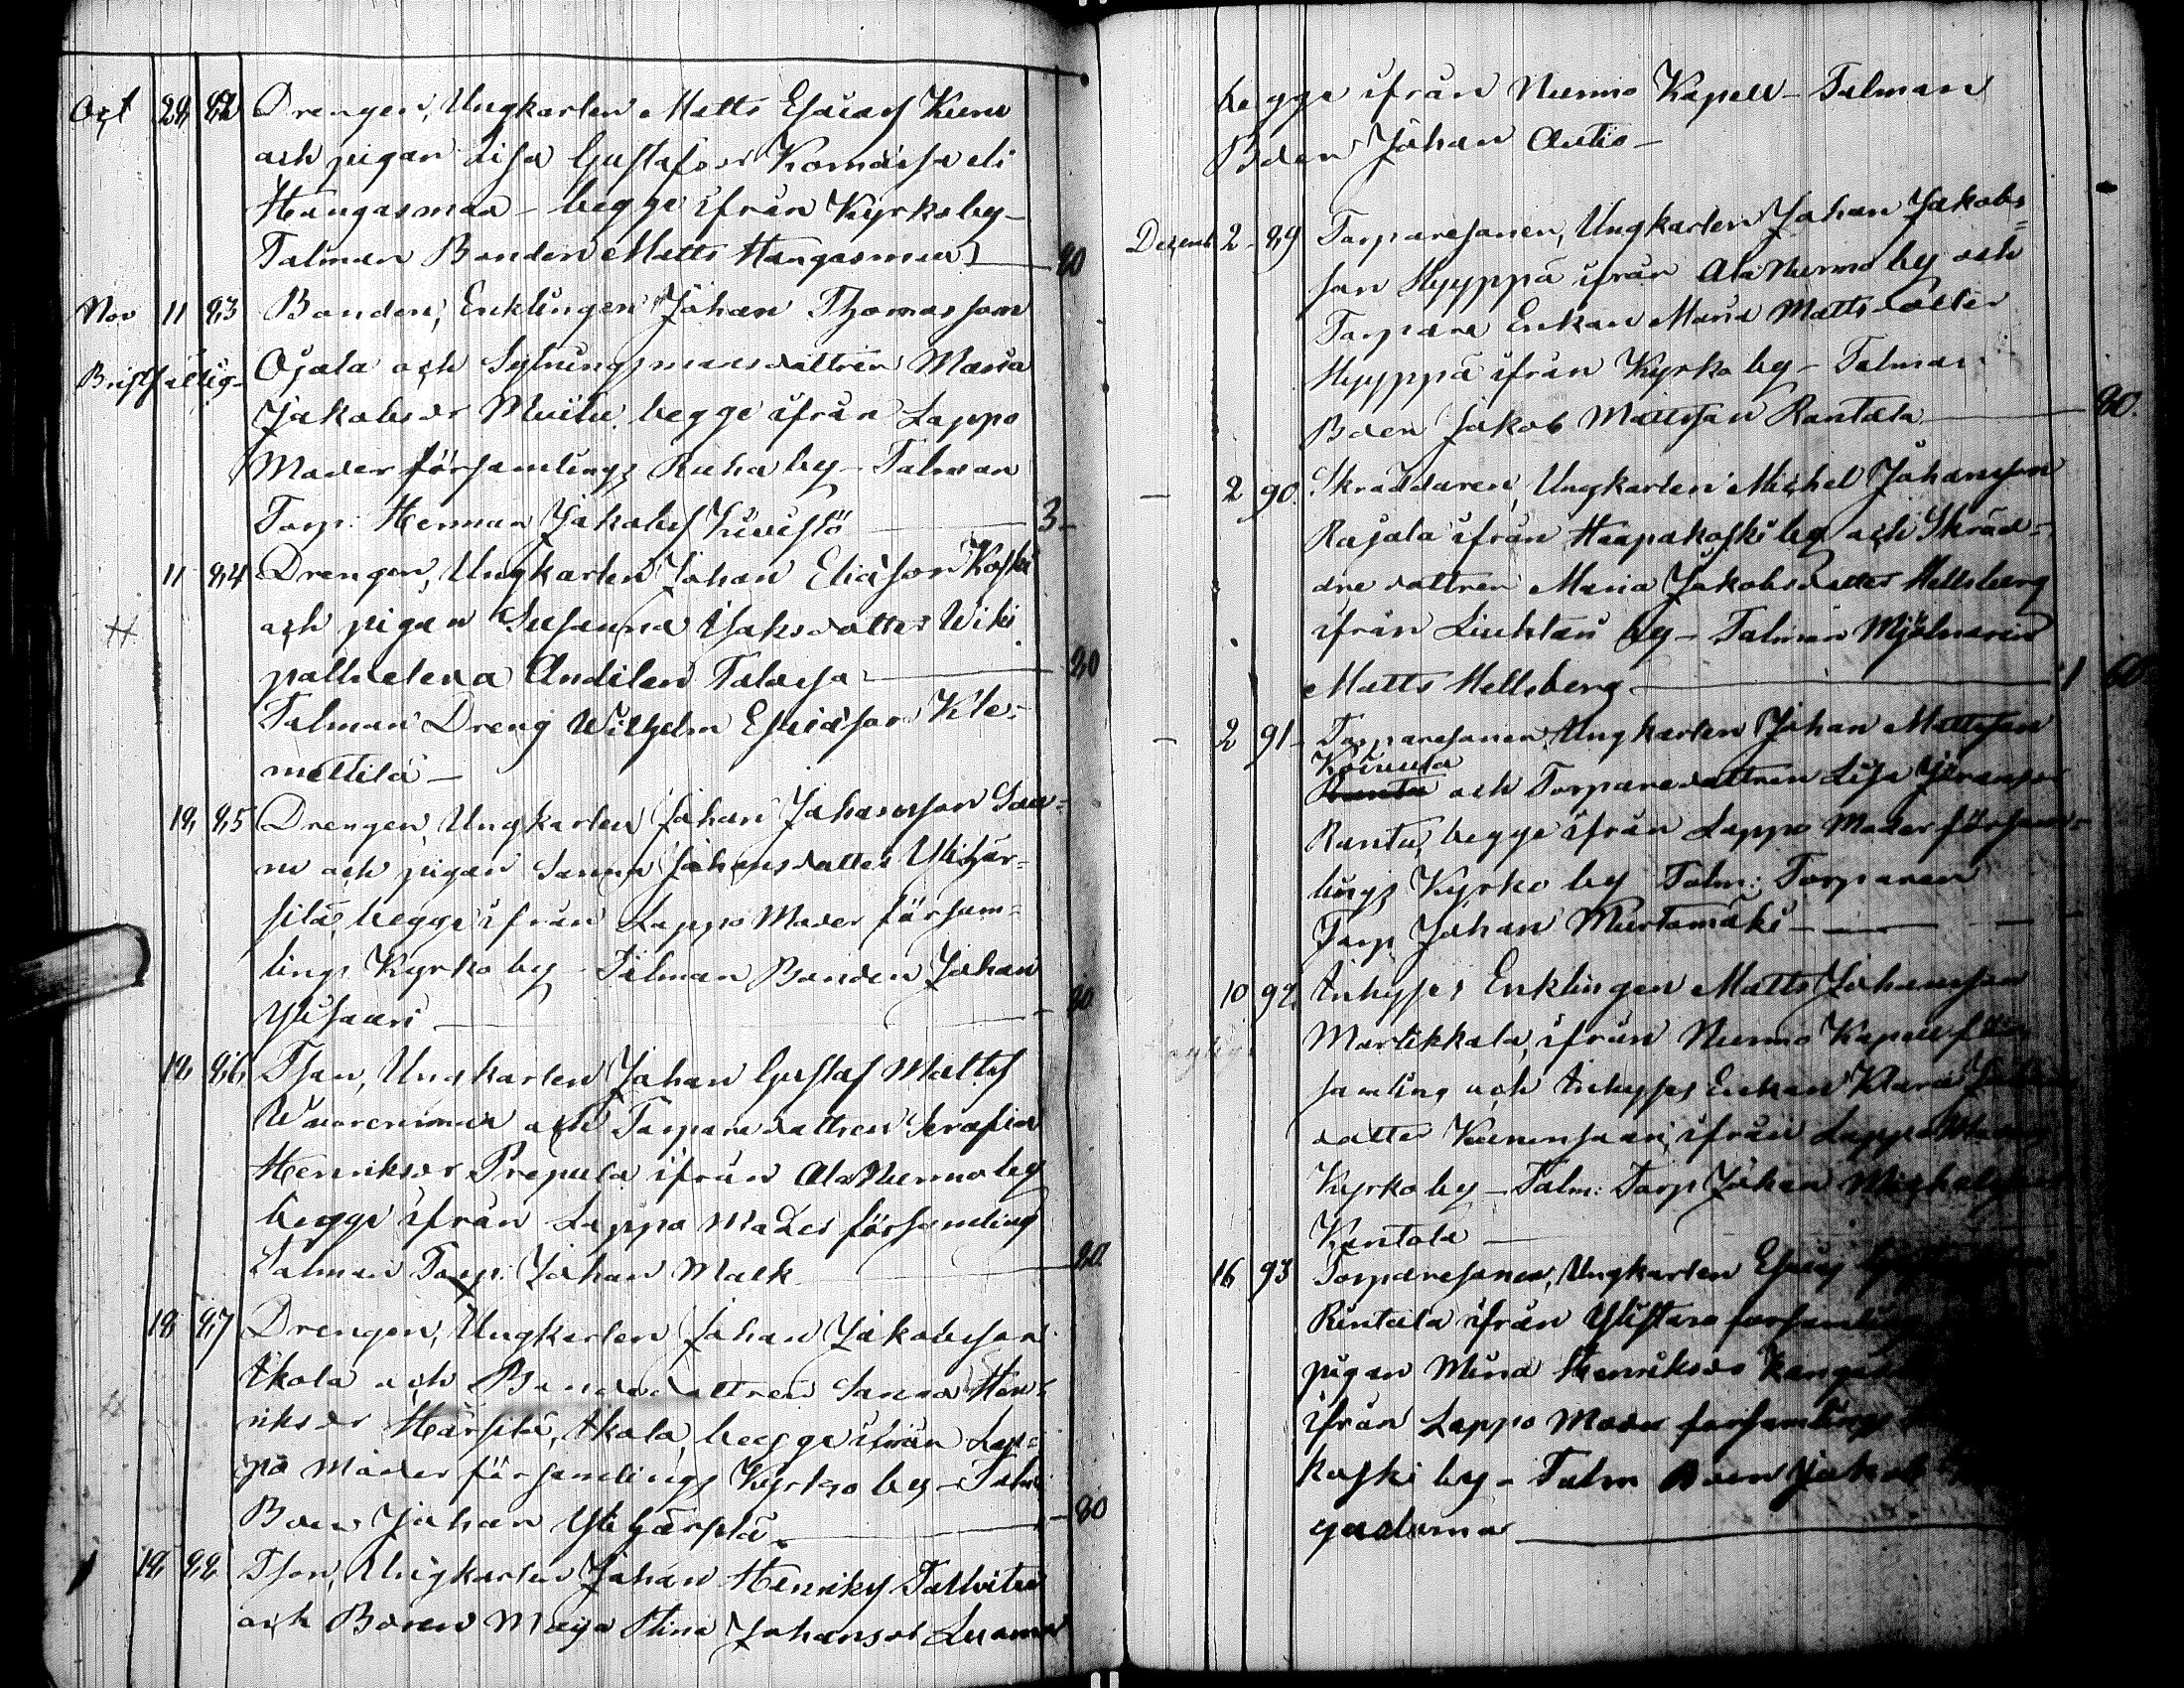 Oct 28 82 Drengen, Ungkarlen Matts Esaias Kuru
och pigan Lisa Gustafsdr
Hangasmaa - begge ifrån Kyrkoby -
Talman Bonden Matts Hangasmaa - 80
Nov 11 83 Bonden, Enklingen Johan Thomasson
Bristfällig Ojala och dottren Maria
Jakobsdr begge ifrån Lappo
Moderförsamlings Ruha by - Talman
Torp. Herman Jakobss 3 -
11 84 Drengen, Ungkarlen Johan Eliasson Koski
och pigan Susanna Isaksdotter Wiki
80
Talman Dreng Wilhelm Esaiasson Kle-
mettilä -
18 85 Drengen, Ungkarlen Johan Johansson Saa-
ri och pigan Sanna Johansdotter Ylihär-
silä, begge ifrån Lappo Moder försam-
lings Kyrko by - Talman Bonden Johan
Ylisaari - 80
18 86 Tson, Ungkarlen Johan Gustaf Matts
Wuorenmaa och Torparedottren Serafia
Henriksdr Prepula ifrån Ala Nurmo by
begge ifrån Lappo Moder församling
Talman Torp. Johan Malk 80
18 87 Drengen, Ungkarlen Johan Jakobsson
Ikola och Bondedottren Sanna Hen-
riksdr Härsilä, Ikola, begge ifrån Lap-
po Moder församlings Kyrko by - Talm
Bden Johan Ylihärsilä - 80
18 88 Tson, Ungkarlen Johan Henriks Talvitie
och Boren Maja Stina Johansdr Luoma
begge ifrån Nurmo Kapell - Talman
Bden Johan Antio -
Decemb 2 - 89 Torparesonen, Ungkarlen Johan Jakobs=
son Hyyppä ifrån Ala Nurmo by och
Torpare Enkan Maria Mattsdotter
Hyyppä ifrån Kyrko by - Talman
Bden Jakob Mattsson Rantala - 80.
- 2 90. Skräddaren, Ungkarlen Michel Johansson
Rajala ifrån Haapakoski by och Skräd-
dredottren Maria Jakobsdotter Hellsberg
ifrån Liuhtari by - Talman Mjölnaren
Matts Hellsberg - 1 60
- 2 91 - Torparesonen, Ungkarlen Johan Mattsson
Ranta och Torparedottren Lisa
Ranta, begge ifrån Lappo Moder försam-
lings Kyrko by Talm: Torparen
Torp Johan Murtomäki -
10 92. Inhyses Enklingen Matts Johansson
Martikkala, ifrån Nurmo Kapell för
samling och Inhyses Enkan Klara
dotter Kuurensaari, ifrån Lappo
Kyrko by - Talm: Torp Johan Michelsson
Kantola -
16 93 Torparesonen, Ungkarlen Esaias
Rintala ifrån Ylistaro församling
pigan Mina Henriksdr
ifrån Lappo Moder församlings
koski by - Talm Bden Jakob